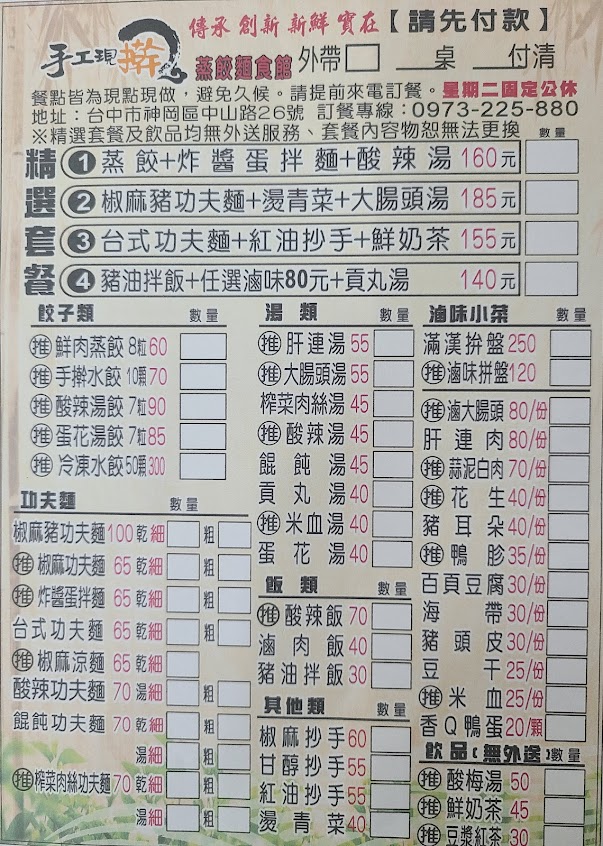 傳承 創新 新鮮 實在【請先付款】
手工現擀 蒸餃麵食館 外帶□ __桌 __付清
餐點皆為現點現做，避免久候。請提前來電訂餐。星期二固定公休
地址：台中市神岡區中山路26號 訂餐專線：0973-225-880
※精選套餐及飲品均無外送服務、套餐內容物恕無法更換 數量
精選套餐
1 蒸餃+炸醬蛋拌麵+酸辣湯 160元
2 椒麻豬功夫麵+燙青菜+大腸頭湯 185元
3 台式功夫麵+紅油抄手+鮮奶茶 155元
4 豬油拌飯+任選滷味80元+貢丸湯 140元
餃子類 數量
推 鮮肉蒸餃 8粒 60
推 手擀水餃 10顆 70
推 酸辣湯餃 7粒 90
推 蛋花湯餃 7粒 85
推 冷凍水餃 50顆 300
功夫麵 數量
椒麻豬功夫麵 100 乾 細 粗
推 椒麻功夫麵 65 乾 細 粗
推 炸醬蛋拌麵 65 乾 細 粗
台式功夫麵 65 乾 細 粗
推 椒麻涼麵 65 乾 細
酸辣功夫麵 70 湯 細 粗
餛飩功夫麵 70 乾 細 粗
湯 細 粗
推 榨菜肉絲功夫麵 70 乾 細 粗
湯 細 粗
湯類 數量
推 肝連湯 55
推 大腸頭湯 55
榨菜肉絲湯 45
推 酸辣湯 45
餛飩湯 45
貢丸湯 40
推 米血湯 40
蛋花湯 40
飯類 數量
推 酸辣飯 70
滷肉飯 40
豬油拌飯 30
其他類 數量
椒麻抄手 60
甘醇抄手 55
紅油抄手 55
燙青菜 40
滷味小菜 數量
滿漢拚盤 250
推 滷味拼盤 120
推 滷大腸頭 80/份
肝連肉 80/份
推 蒜泥白肉 70/份
推 花生 40/份
豬耳朵 40/份
推 鴨胗 35/份
百頁豆腐 30/份
海帶 30/份
豬頭皮 30/份
豆干 25/份
推 米血 25/份
香Q鴨蛋 20/顆
飲品(無外送) 數量
推 酸梅湯 50
推 鮮奶茶 45
推 豆漿紅茶 30